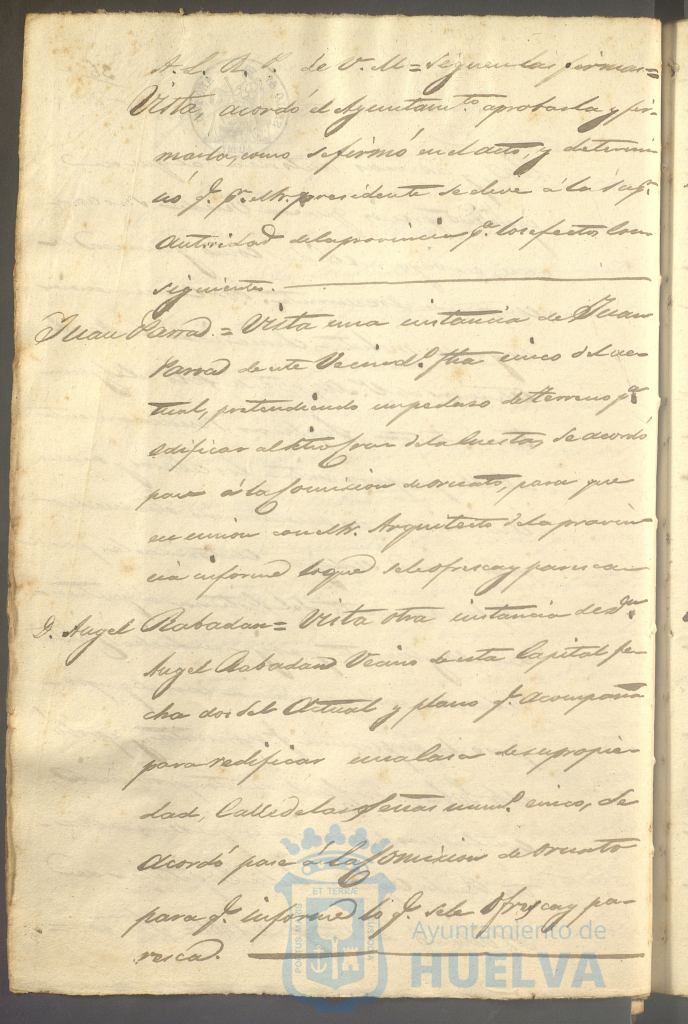 A. L. R. P. de V. M = Siguen las firmas =
Vista, acordó el Ayuntamto. aprobarla y fir-
marla, como se firmó en el acto, y determi-
nó q. pr. el Sr. presidente se eleve á la Supr.
Autoridad de la provincia pa. los efectos con-
siguientes.
Juan Parra = Vista una instancia de Juan
Parra de este Vecindo. fha cinco del ac-
tual, pretendiendo un pedaso de terreno pa.
edificar al sitio de la Cuesta, se acordó
pase á la Comision de ornato, para que
en union con el Sr. Arquitecto de la provin-
cia informe lo que se le ofresca y paresca
D. Angel Rabadan = Vista otra instancia de Dn.
Angel Rabadan Vecino de esta Capital fe-
cha dos del Actual y plano q. acompaña
para redificar una Casa de su propie-
dad, Calle de las numo. cinco, se
acordó pase á la Comision de ornato
para q. informe lo q. se le ofresca y pa-
resca.
ET TERRAE
PORTUS MARIS
CUSTODIA
Ayuntamiento de
HUELVA